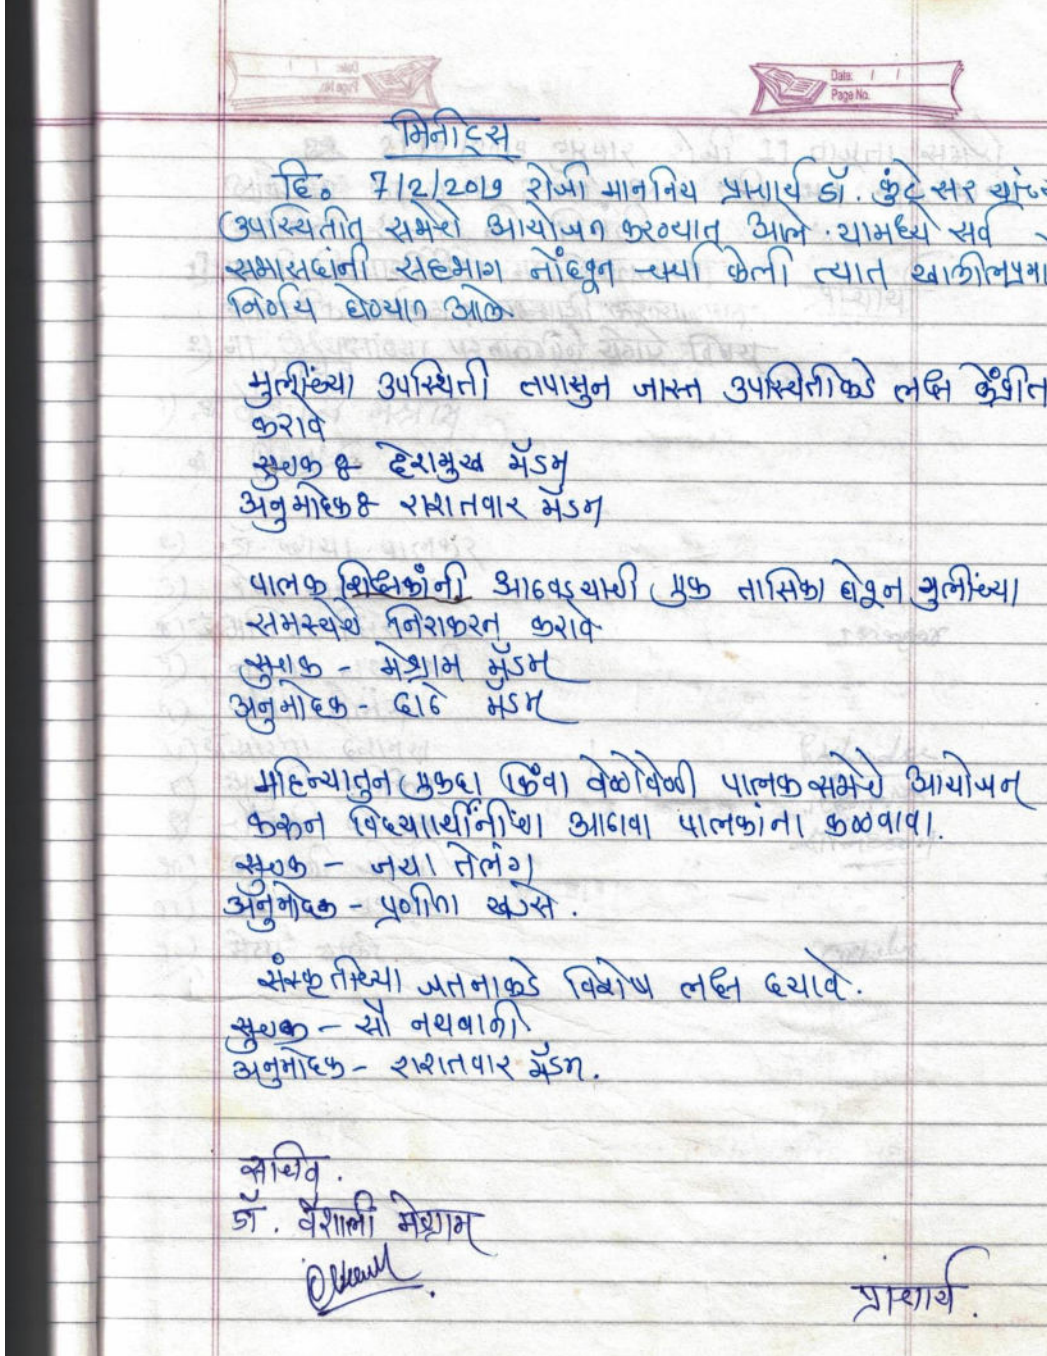 Date: / /
Page No.
मिनीट्स
दि. 7/2/2019 रोजी माननिय प्राचार्य डॉ. कुंटे सर यांच्
उपस्थितीत सभेचे आयोजन करण्यात आले. यामध्ये सर्व
सभासदांनी सहभाग नोंदवून चर्चा केली त्यात खालीलप्रमा
निर्णय घेण्यात आले.
मुलींच्या उपस्थिती तपासुन जास्त उपस्थितीकडे लक्ष केंद्रीत
करावे
सुचक : देशमुख मॅडम
अनुमोदक : राशतवार मॅडम
पालक शिक्षकांनी आठवड्याची एक तासिका घेवून मुलींच्या
समस्येचे निराकरन करावे
सुचक - मेश्राम मॅडम
अनुमोदक - दाढे मॅडम
महिन्यातुन एकदा किंवा वेळोवेळी पालक सभेचे आयोजन
करून विद्यार्थीनींचा आढावा पालकांना कळवावा.
सुचक - जया तेलंग
अनुमोदक - प्रणीता खडसे.
संस्कृतीच्या जतनाकडे विशेष लक्ष दयावे.
सुचक - सौ नथवानी
अनुमोदक - राशतवार मॅडम.
सचिव.
डॉ. वैशाली मेश्राम
प्राचार्य.